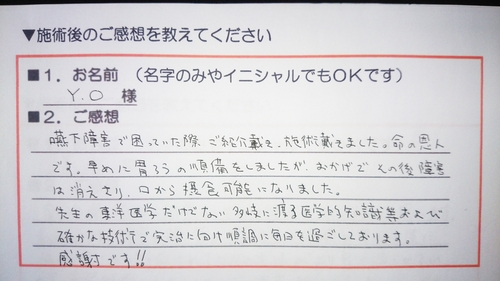 ▼施術後のご感想を教えてください
■1．お名前 （名字のみやイニシャルでもOKです）
Y.O 様
■2．ご感想
嚥下障害で困っていた際、ご紹介戴き、施術戴きました。命の恩人
です。早めに胃ろうの準備をしましたが、おかげで その後 障害
は消えさり、口から摂食可能になりました。
先生の東洋医学だけでない 多岐に渡る医学的知識等および
確かな技術で完治に向け順調に毎日を過ごしております。
感謝です!!